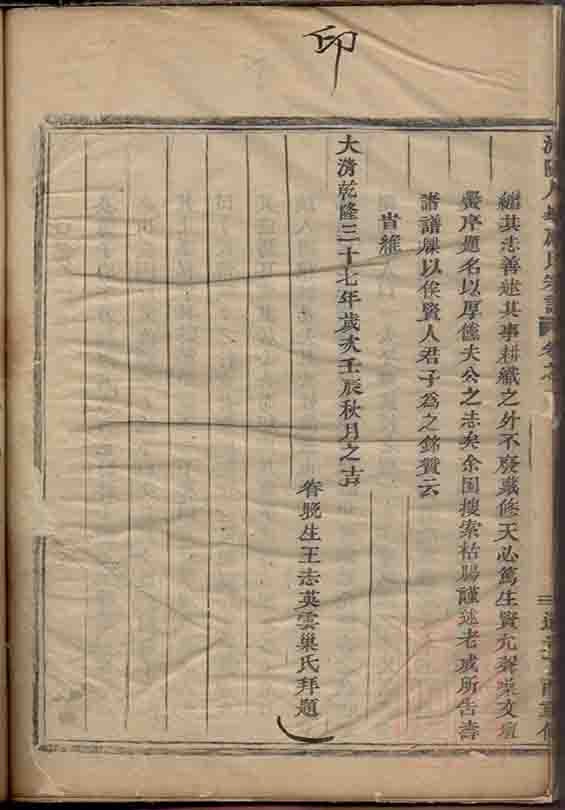 印
繼其志善述其事耕織之外不廢職修天必篤生賢允聲業文壇
譽序題名以厚僖夫公之志矣余因搜索枯腸謹述老成所告壽
諸譜牒以俟賢人君子為之銘贊云
旹維
大清乾隆三十七年歲次壬辰秋月之吉
眷晚生王志英雲巢氏拜題
氏宗譜 卷之